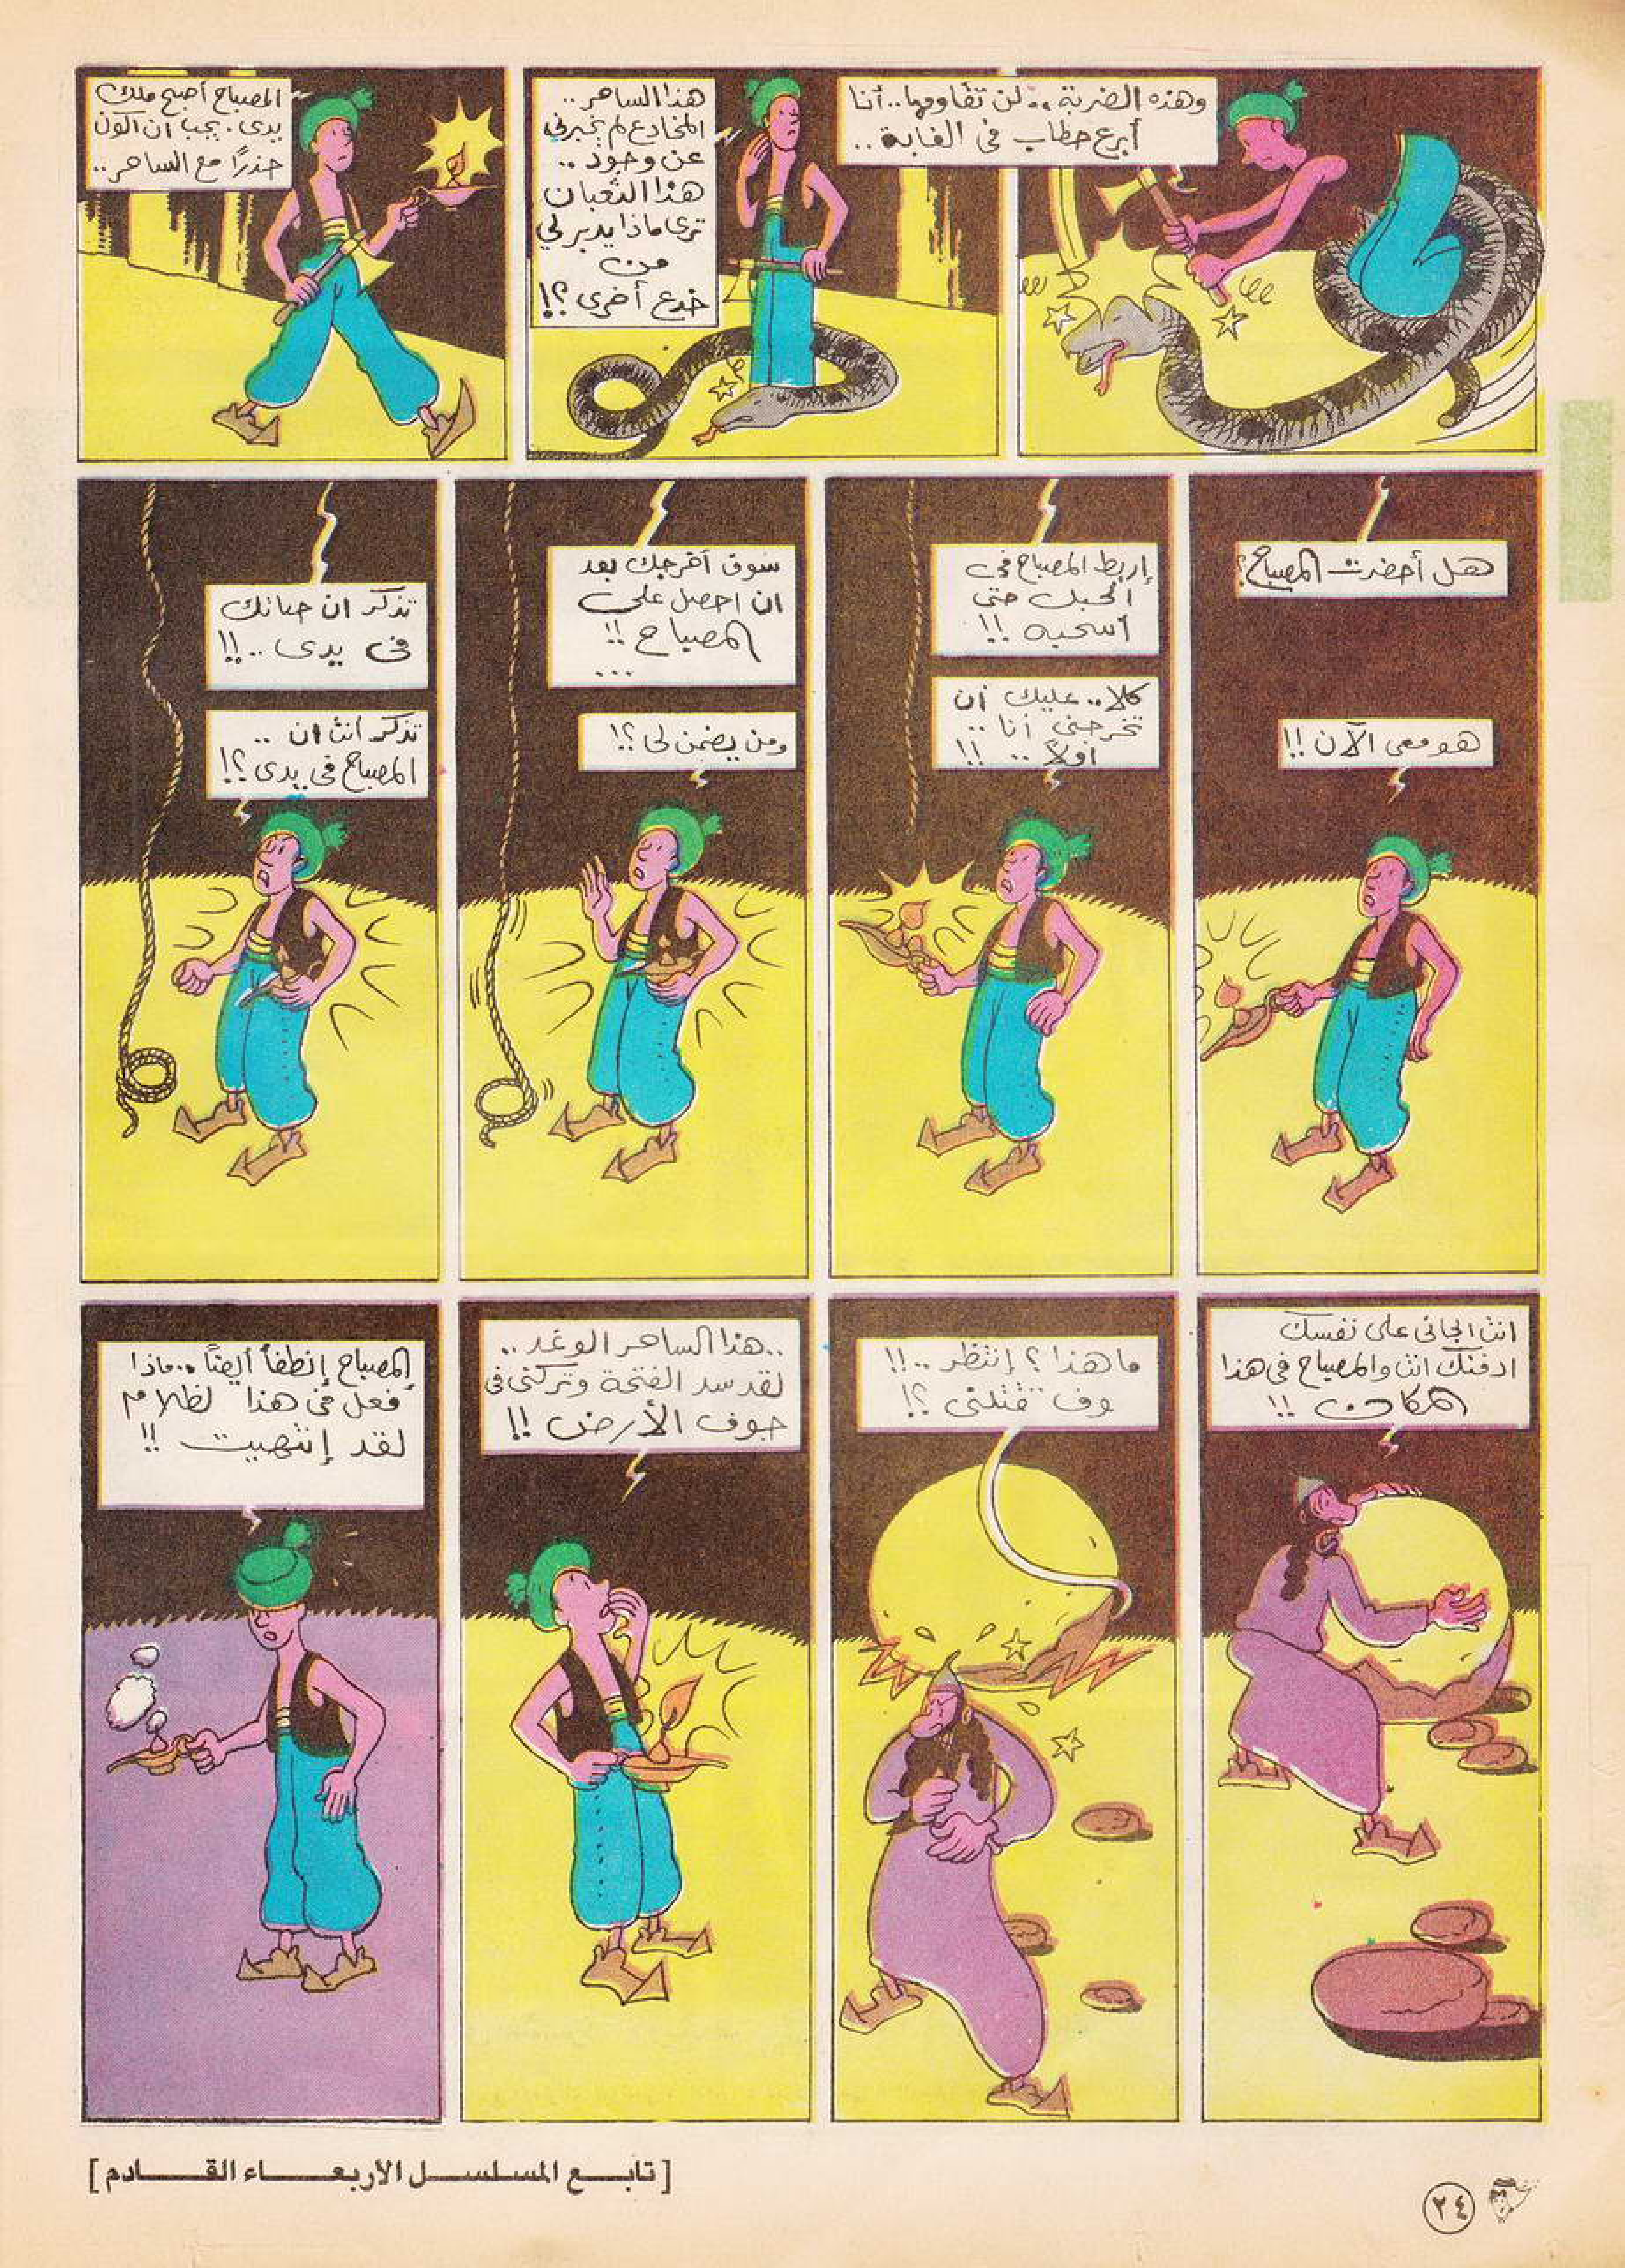 وهذه الضربة .. لن تقاومها .. أنا
أبرع حطاب فى الغابة ..
هذا الساحر ..
المخادع لم يخبرني
عن وجود ..
هذا الثعبان
ترى ماذا يدبر لي
من
خدع أخرى ؟!
المصباح أصبح ملك
يدى . يجب ان اكون
حذرًا مع الساحر ..
هل أحضرت المصباح ؟
هو معى الآن !!
إربط المصباح فى
الحبل حتى
أسحبه !!
كلا .. عليك أن
تخرجنى أنا ..
أولاً .. !!
سوف أخرجك بعد
ان احصل على
المصباح !!
...
ومن يضمن لى ؟!
تذكر ان حياتك
فى يدى .. !!
تذكر أنت ان ..
المصباح فى يدى ؟!
انت الجانى على نفسك
ادفنك انت والمصباح فى هذا
المكان !!
ما هذا ؟ إنتظر .. !!
وف تقتلنى ؟!
.. هذا الساحر الوغد ..
لقد سد الفتحة وتركنى فى
جوف الأرض !!
المصباح إنطفأ أيضًا .. ماذا
أفعل فى هذا لظلام
لقد إنتهيت !!
[ تابع المسلسل الأربعاء القادم ]
٢٤